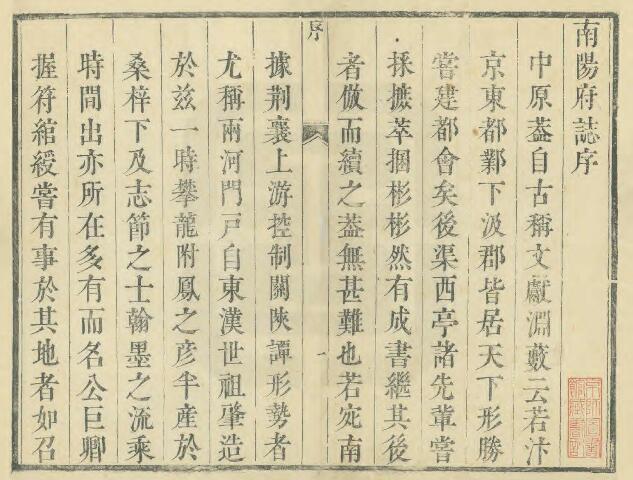 南陽府誌序
中原葢自古稱文獻淵藪云若汴
京東都鄴下汲郡皆居天下形勝
嘗建都會矣後渠西亭諸先輩嘗
採摭萃捆彬彬然有成書繼其後
者倣而續之葢無甚難也若宛南
序
一
據荆襄上游控制關陜譚形勢者
尤稱兩河門戸自東漢世祖肇造
於兹一時攀龍附鳳之彦半產於
桑梓下及志節之士翰墨之流乘
時間出亦所在多有而名公巨卿
握符綰綬嘗有事於其地者如召